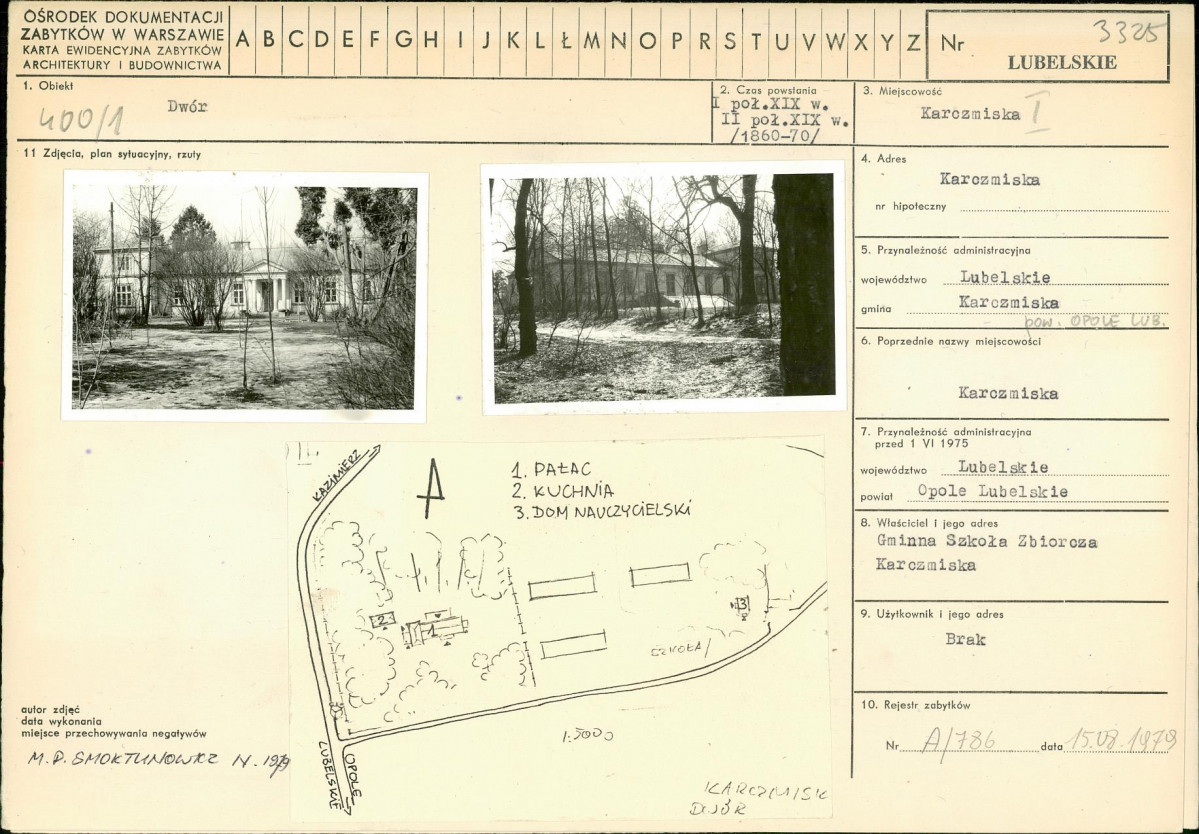 OŚRODEK DOKUMENTACJI
ZABYTKÓW W WARSZAWIE
KARTA EWIDENCYJNA ZABYTKÓW
ARCHITEKTURY I BUDOWNICTWA
A B C D E F G H I J K L Ł M N O P R S T U V W X Y Z
Nr 3325
LUBELSKIE
1. Obiekt
400/1
Dwór
2. Czas powstania
I poł.XIX w.
II poł.XIX w.
/1860-70/
3. Miejscowość
Karczmiska I
11 Zdjęcia, plan sytuacyjny, rzuty
4. Adres
Karczmiska
nr hipoteczny
5. Przynależność administracyjna
województwo Lubelskie
gmina Karczmiska
pow. OPOLE LUB.
6. Poprzednie nazwy miejscowości
Karczmiska
7. Przynależność administracyjna
przed 1 VI 1975
województwo Lubelskie
powiat Opole Lubelskie
8. Właściciel i jego adres
Gminna Szkoła Zbiorcza
Karczmiska
9. Użytkownik i jego adres
Brak
10. Rejestr zabytków
Nr A/786 data 15.08.1979
KAZIMIERZ
1. PAŁAC
2. KUCHNIA
3. DOM NAUCZYCIELSKI
2
1
3
SZKOŁA
1:5000
OPOLE
LUBELSKIE
KARCZMISK
DWÓR
autor zdjęć
data wykonania
miejsce przechowywania negatywów
M. P. SMOKTUNOWICZ IV. 1979